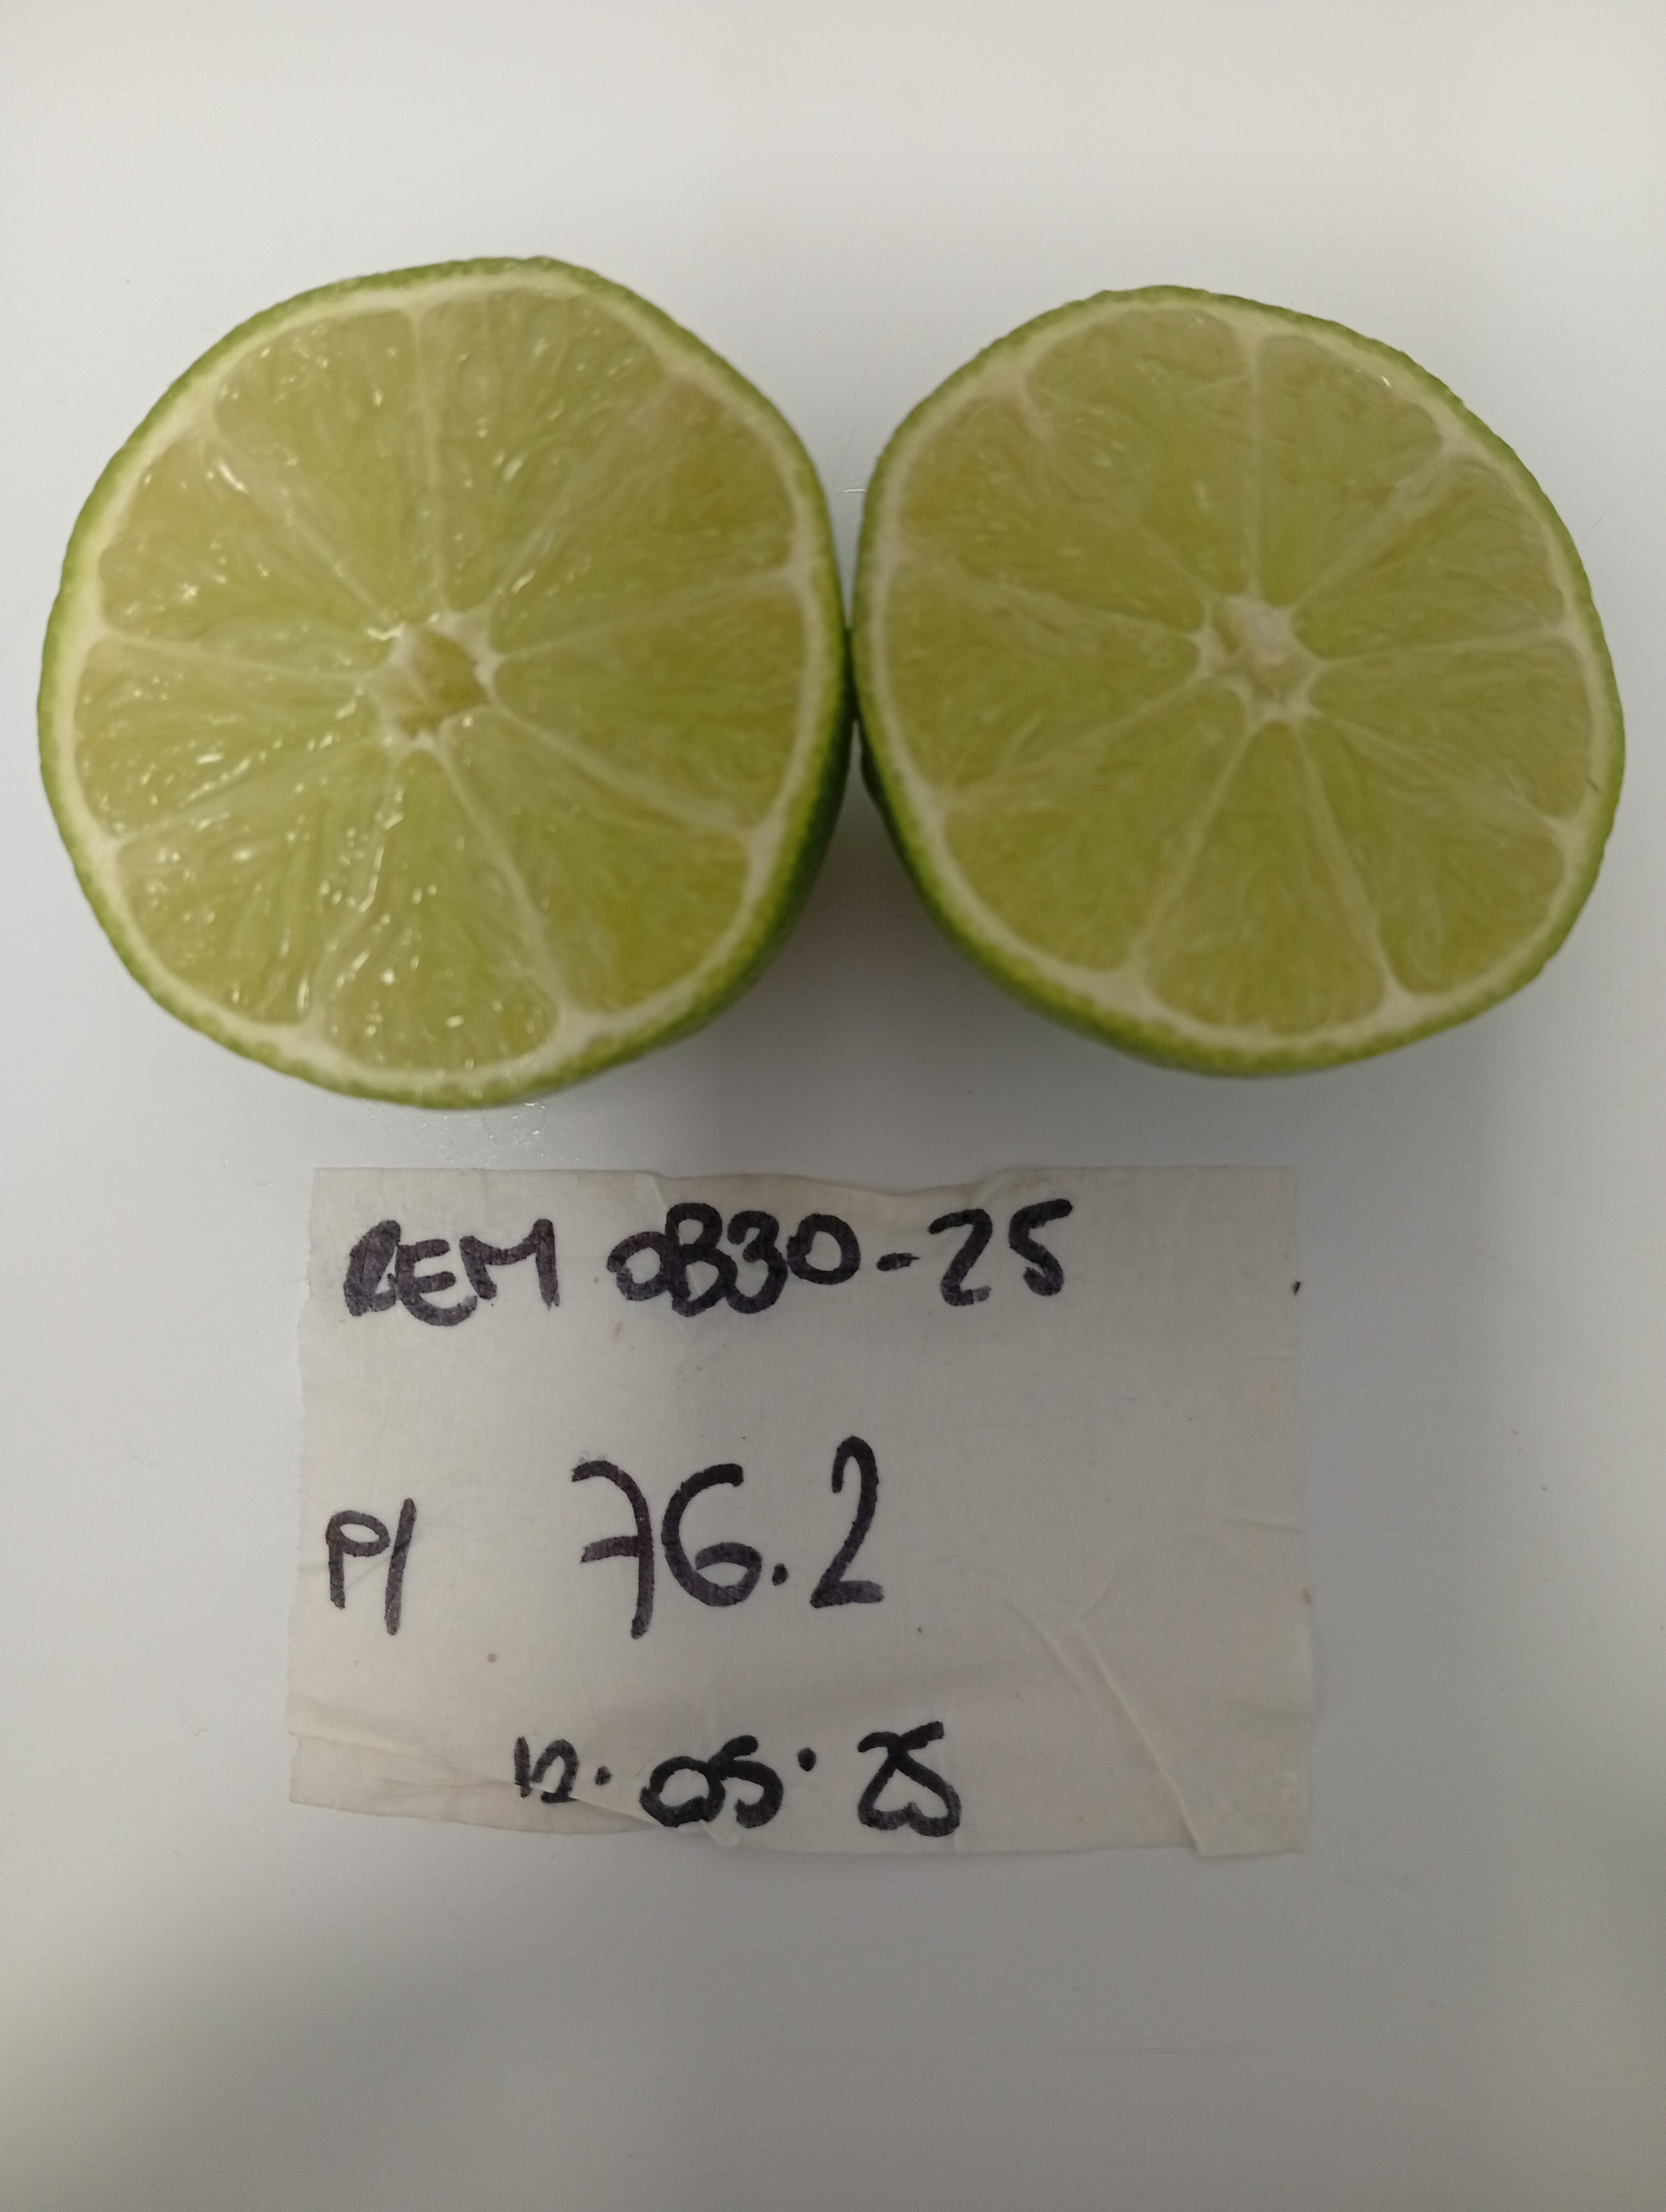 REM 0B30-25
P/ 76.2
12.05.25